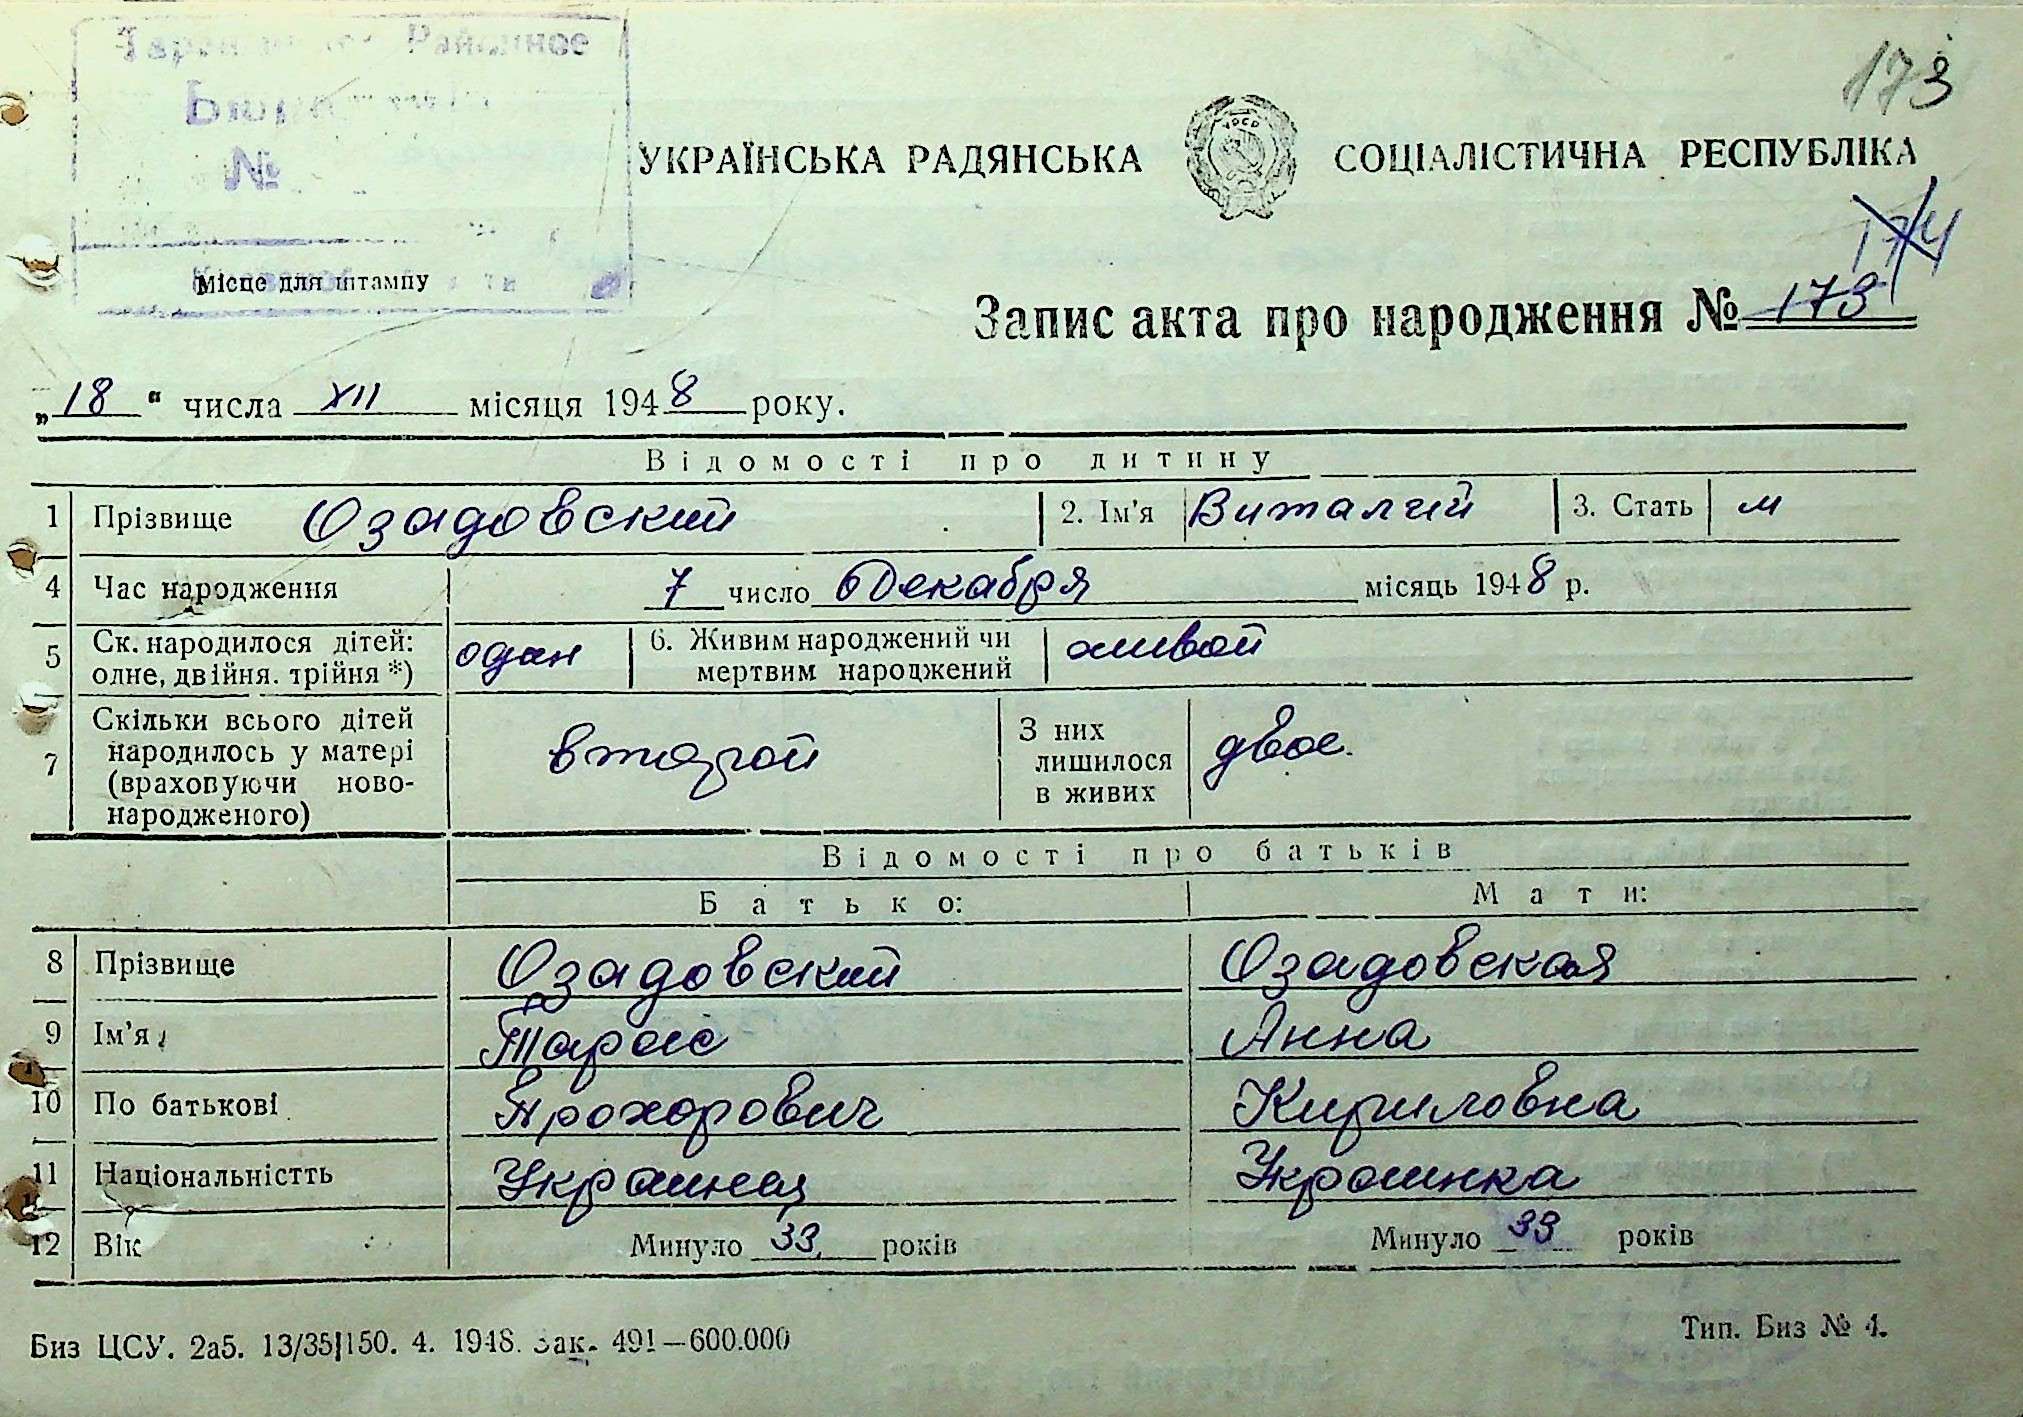 Районное
№
173
УКРАЇНСЬКА РАДЯНСЬКА СОЦІАЛІСТИЧНА РЕСПУБЛІКА
УРСР
Місце для штампу
174
Запис акта про народження № 173
„18“ числа XII місяця 1948 року.
Відомості про дитину
1 Прізвище Озадовский 2. Ім'я Виталий 3. Стать м
4 Час народження 7 число Декабря місяць 1948 р.
5 Ск. народилося дітей: одне, двійня. трійня *) один 6. Живим народжений чи мертвим народжений живой
7 Скільки всього дітей народилось у матері (враховуючи ново-народженого) второй З них лишилося в живих двое.
Відомості про батьків
Батько: Мати:
8 Прізвище Озадовский Озадовская
9 Ім'я Тарас Анна
10 По батькові Прохорович Кириловна
11 Національністть Украинец Украинка
12 Вік Минуло 33 років Минуло 33 років
Биз ЦСУ. 2а5. 13/35|150. 4. 1948. Зак. 491—600.000 Тип. Биз № 4.